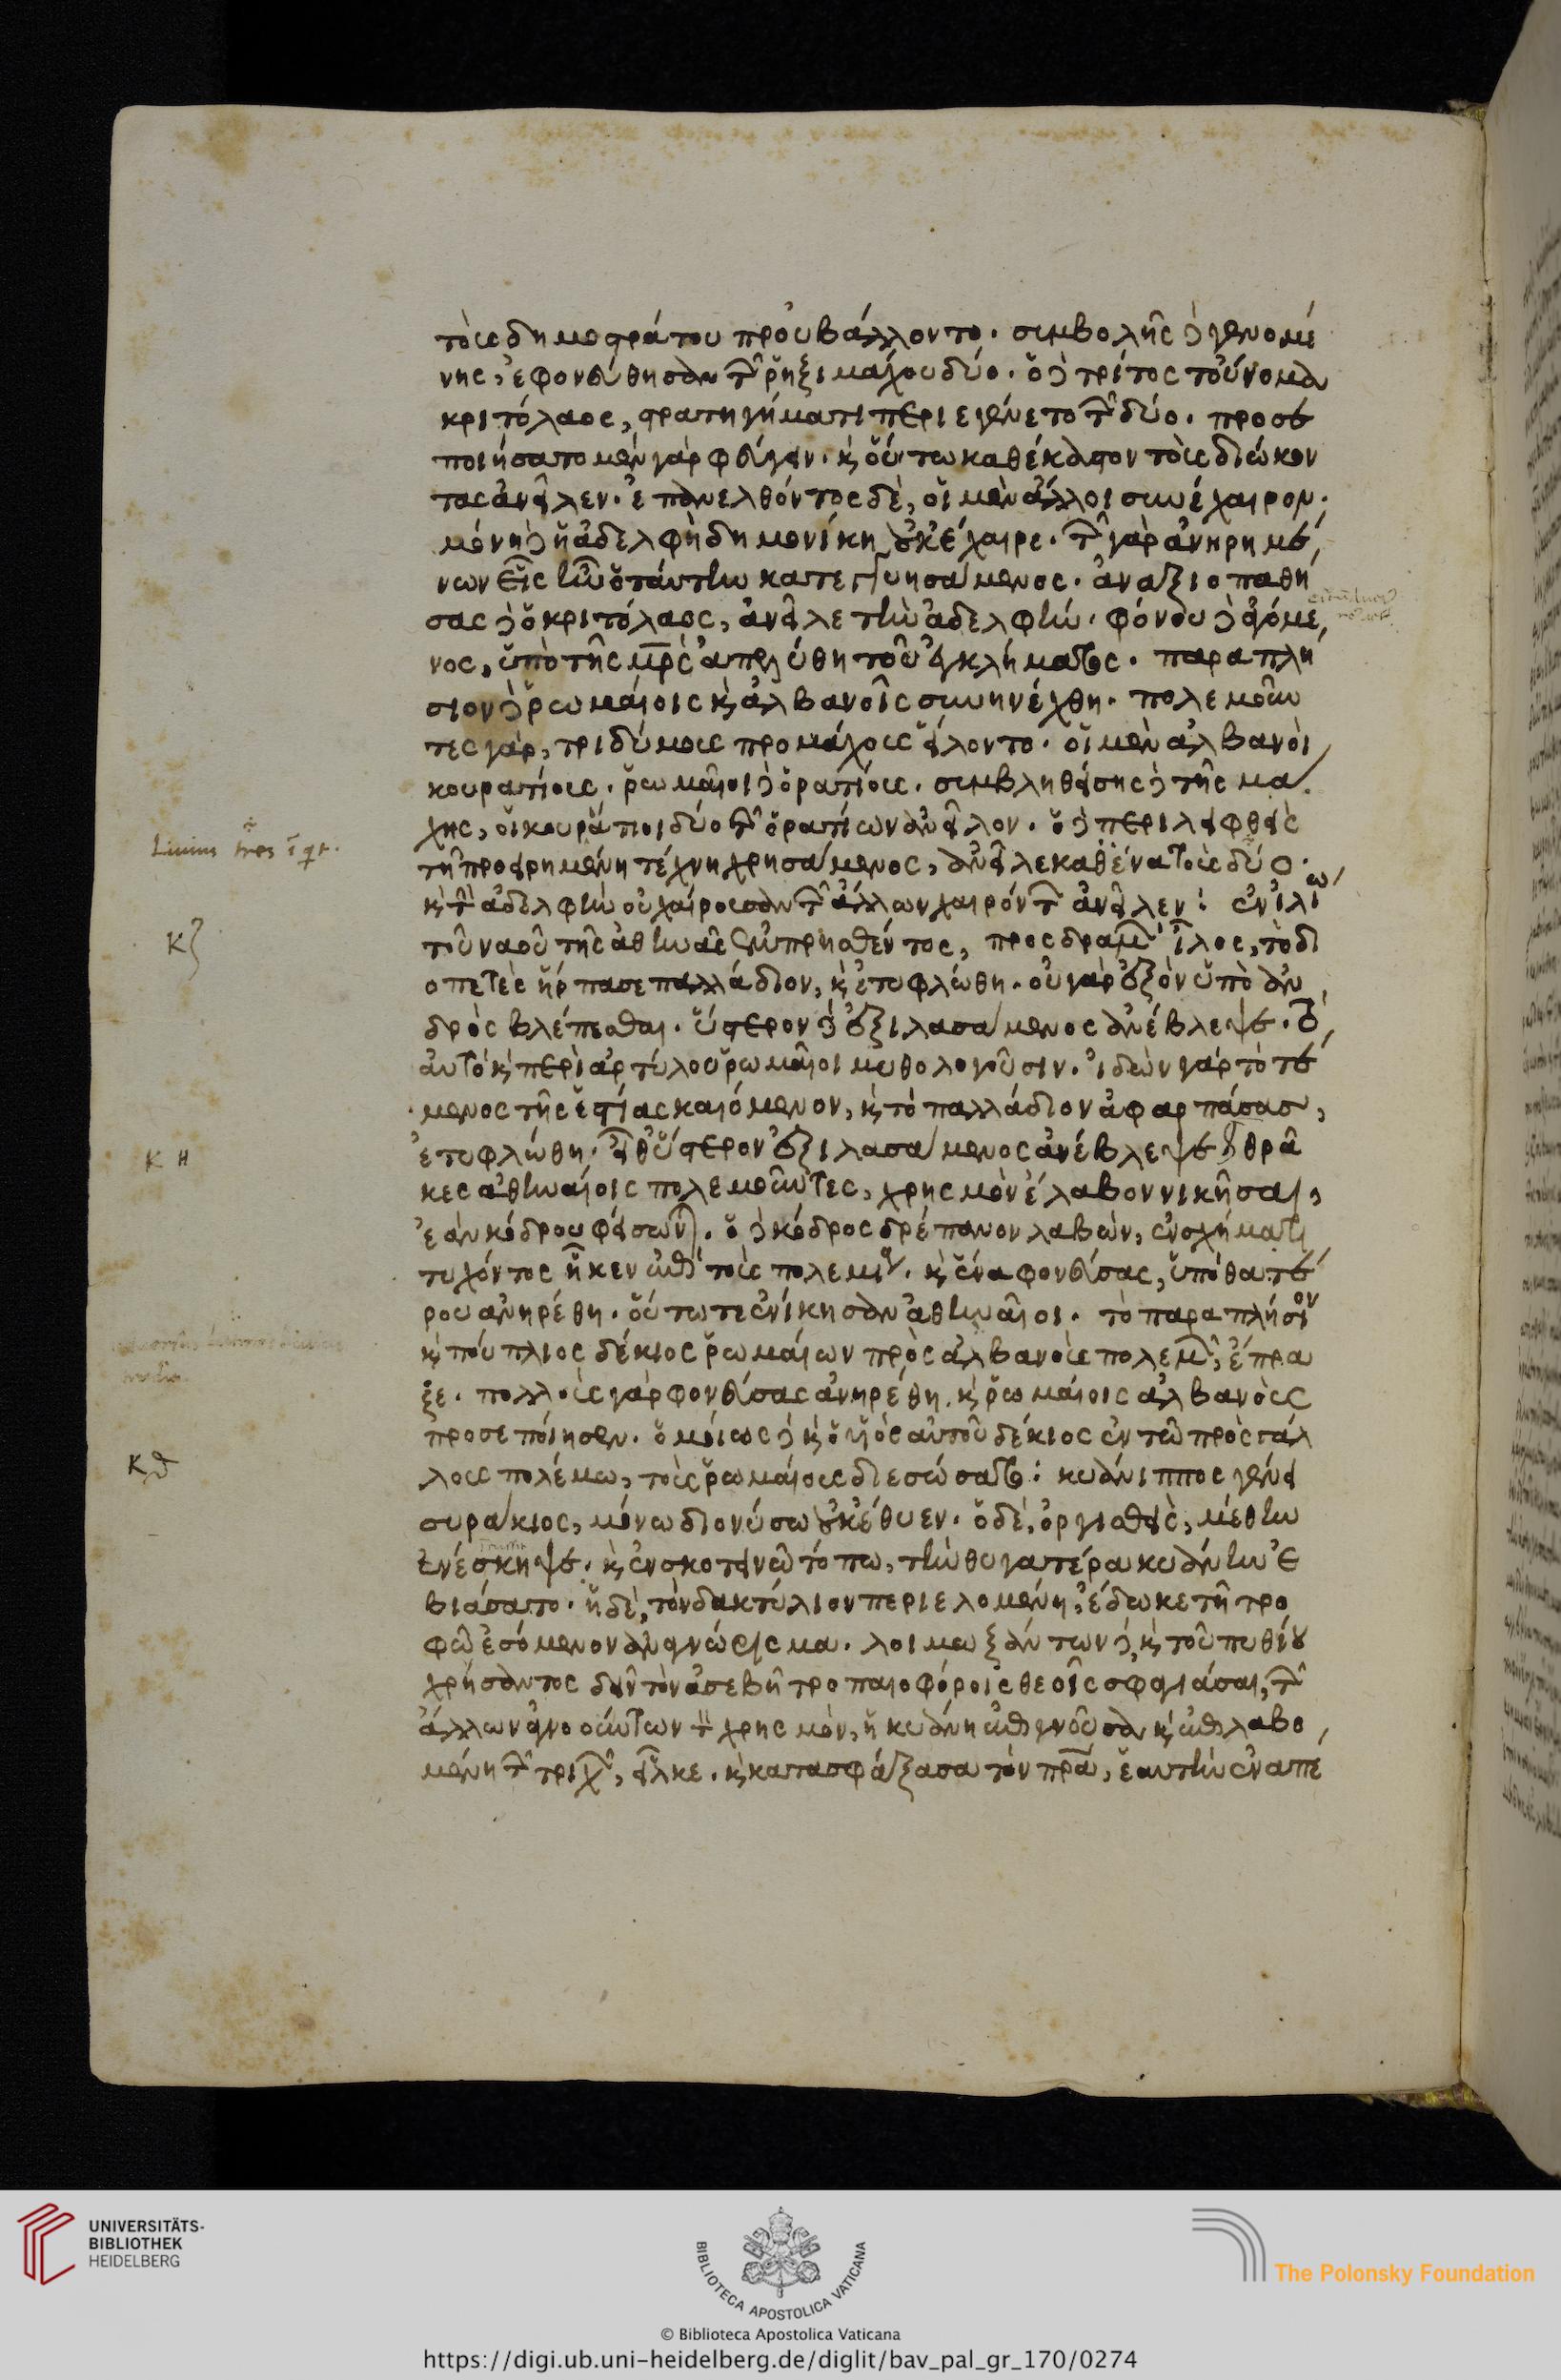 τοὺς δημοστράτου προὐβάλλοντο. συμβολῆς δὲ γενομέ
νης, ἐφονεύθησαν τῶν ῥηξιμάχου δύο. ὁ δὲ τρίτος τοὔνομα
κριτόλαος, στρατηγήματι περιεγένετο τῶν δύο. προσε
ποιήσατο μὲν γὰρ φεύγειν. καὶ οὕτω καθέκαστον τοὺς διώκον
τας ἀνεῖλεν. ἐπανελθόντος δὲ, οἱ μὲν ἄλλοι συνέχαιρον.
μόνη δὲ ἡ ἀδελφὴ δημονίκη οὐκ ἔχαιρε. τῶν γὰρ ἀνηρημέ
νων εἷς ἦν ὁ ταύτην κατεγγυησάμενος. ἀναξιοπαθή
σας δὲ ὁ κριτόλαος, ἀνεῖλε τὴν ἀδελφήν. φόνου δὲ ἀγόμε
νος, ὑπὸ τῆς μρς ἀπελύθη τοῦ ἐγκλήματος. παραπλή
σιον δὲ ῥωμαίοις καὶ ἀλβανοῖς συνηνέχθη. πολεμοῦν
τες γὰρ, τριδύμους προμάχους εἵλοντο. οἱ μὲν ἀλβανοὶ
κουρατίους. ῥωμαῖοι δὲ ὁρατίους. συμβληθείσης δὲ τῆς μά
χης, οἱ κουράτιοι δύο τῶν ὁρατίων ἀνεῖλον. ὁ δὲ περιλειφθεὶς
τῇ προειρημένῃ τέχνῃ χρησάμενος, ἀνεῖλε καθένα τοὺς δύο.
καὶ τὴν ἀδελφὴν οὐ χαίρουσαν τῶν ἄλλων χαιρόντων ἀνεῖλεν: ἐν ἰλίῳ
τοῦ ναοῦ τῆς ἀθηνᾶς ἐμπρησθέντος, προσδραμὼν ἶλος, τὸ δι
οπετὲς ἥρπασε παλλάδιον, καὶ ἐτυφλώθη. οὐ γὰρ ἐξὸν ὑπὸ ἀν
δρὸς βλέπεσθαι. ὕστερον δὲ ἐξιλασάμενος ἀνέβλεψε. τὸ
αὐτὸ καὶ περὶ ἀρτύλου ῥωμαῖοι μυθολογοῦσιν. ἰδὼν γὰρ τὸ τέ
μενος τῆς ἑστίας καιόμενον, καὶ τὸ παλλάδιον ἀφαρπάσας,
ἐτυφλώθη. εἶθ' ὕστερον ἐξιλασάμενος ἀνέβλεψε: θρᾶ
κες ἀθηναίοις πολεμοῦντες, χρησμὸν ἔλαβον νικῆσαι,
ἐὰν κόδρου φείσωνται. ὁ δὲ κόδρος δρέπανον λαβὼν, ἐν σχήματι
τυχόντος ἧκεν ἐπὶ τοὺς πολεμίους. καὶ ἕνα φονεύσας, ὑπὸ θατέ
ρου ἀνηρέθη. οὕτω τε ἐνίκησαν ἀθηναῖοι. τὸ παραπλήσιον
καὶ πούπλιος δέκιος ῥωμαίων πρὸς ἀλβανοὺς πολεμούντων, ἔπρα
ξε. πολλοὺς γὰρ φονεύσας ἀνηρέθη. καὶ ῥωμαίοις ἀλβανοὺς
προσεποίησεν. ὁμοίως δὲ καὶ ὁ υἱὸς αὐτοῦ δέκιος ἐν τῷ πρὸς γάλ
λους πολέμῳ, τοὺς ῥωμαίους διεσώσατο: κυάνιππος γένει
συράκιος, μόνῳ διονύσῳ οὐκ ἔθυεν. ὁ δὲ, ὀργισθεὶς, μέθην
ἐνέσκηψε. καὶ ἐν σκοτεινῷ τόπῳ, τὴν θυγατέρα κυάνην ἐ
βιάσατο. ἡ δὲ, τὸν δακτύλιον περιελομένη, ἔδωκε τῇ τρο
φῷ ἐσόμενον ἀναγνώρισμα. λοιμωξάντων δὲ, καὶ τοῦ πυθίου
χρήσαντος δεῖν τὸν ἀσεβῆ τροπαιοφόροις θεοῖς σφαγιάσαι, τῶν
ἄλλων ἀγνοούντων τὸν χρησμὸν, ἡ κυάνη ἐπιγνοῦσα καὶ ἐπιλαβο
μένη τῶν τριχῶν, εἷλκε. καὶ κατασφάξασα τὸν πρα, ἑαυτὴν ἐναπέ
Livius tres
κζ
κη
κθ
UNIVERSITÄTS-
BIBLIOTHEK
HEIDELBERG
BIBLIOTECA APOSTOLICA VATICANA
The Polonsky Foundation
© Biblioteca Apostolica Vaticana
https://digi.ub.uni-heidelberg.de/diglit/bav_pal_gr_170/0274